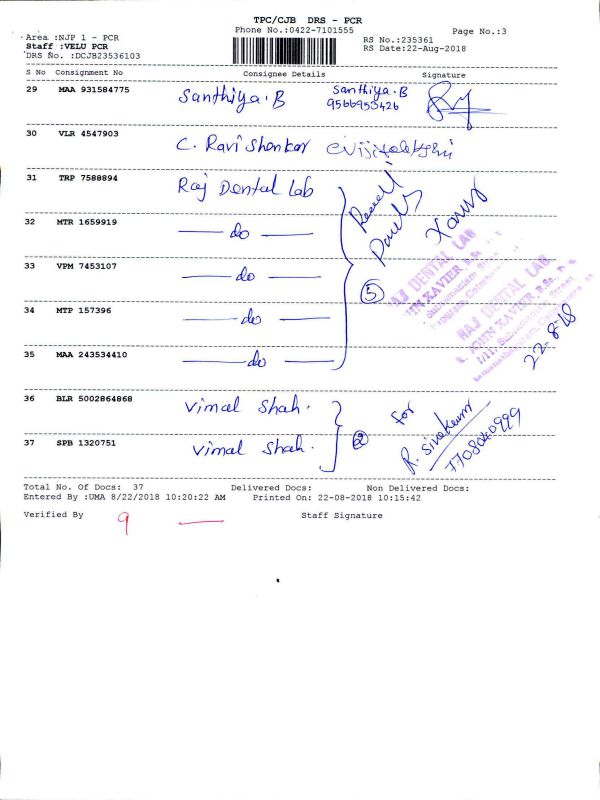 TPC/CJB DRS - PCR
Phone No.:0422-7101555
Page No.:3
Area :NJP 1 - PCR
RS No.:235361
Staff :VELU PCR
RS Date:22-Aug-2018
DRS No. :DCJB23536103
S No Consignment No Consignee Details Signature
29 MAA 931584775 Santhiya.B Santhiya.B
9566955426
30 VLR 4547903 C. Ravi Shankar
31 TRP 7588894 Raj Dental Lab
32 MTR 1659919 — do —
33 VPM 7453107 — do —
34 MTP 157396 — do —
35 MAA 243534410 — do —
5
RAJ DENTAL LAB
JOHN XAVIER, B.Sc.,
22-8-18
36 BLR 5002864868 Vimal Shah.
37 SPB 1320751 Vimal Shah.
2
for
R. Sivakumar
7708040999
Total No. Of Docs: 37 Delivered Docs: Non Delivered Docs:
Entered By :UMA 8/22/2018 10:20:22 AM Printed On: 22-08-2018 10:15:42
Verified By 9 — Staff Signature